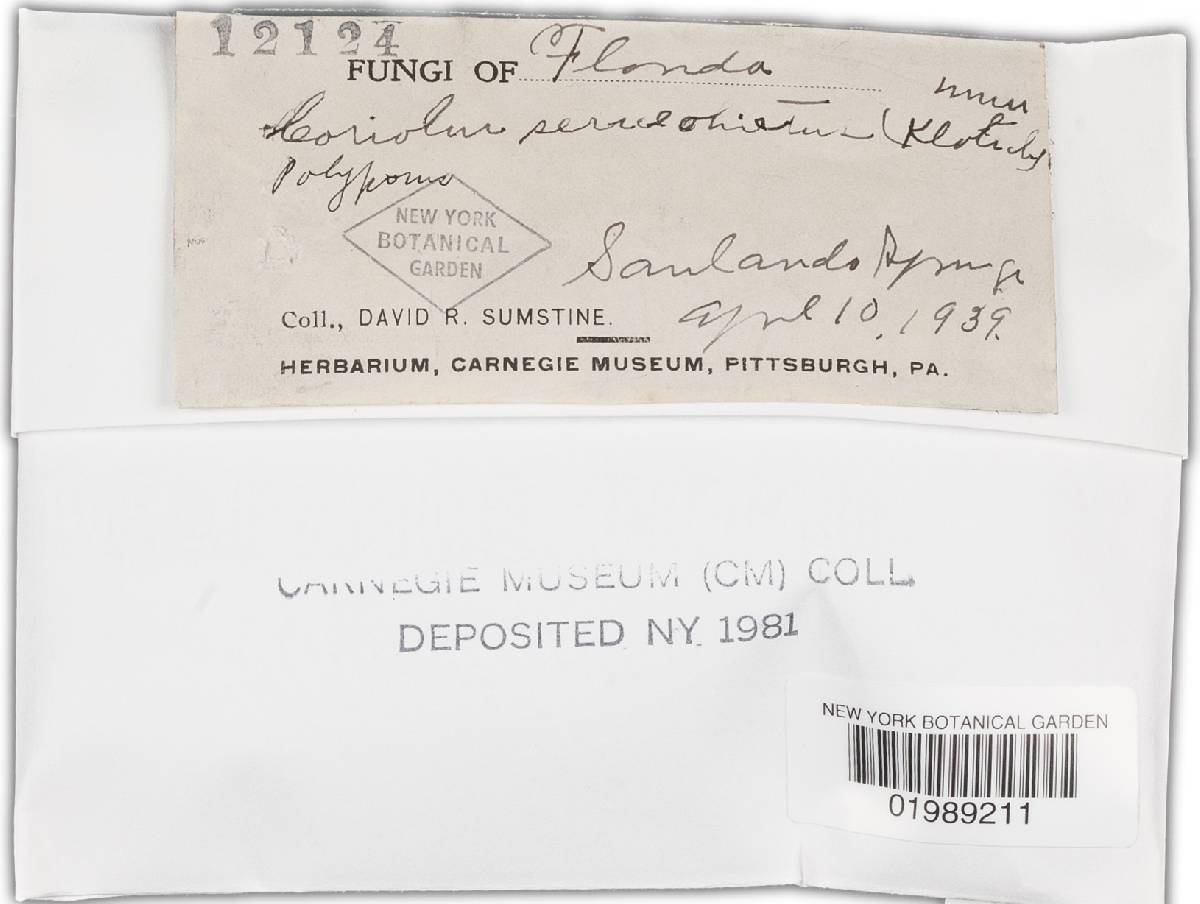 12124
FUNGI OF Florida
Murr
Coriolus sericeohirsutus (Klotzsch)
Polyporus
NEW YORK
BOTANICAL
GARDEN
Sanlando Springs
April 10, 1939.
Coll., DAVID R. SUMSTINE.
HERBARIUM, CARNEGIE MUSEUM, PITTSBURGH, PA.
CARNEGIE MUSEUM (CM) COLL.
DEPOSITED NY. 1981
NEW YORK BOTANICAL GARDEN
01989211